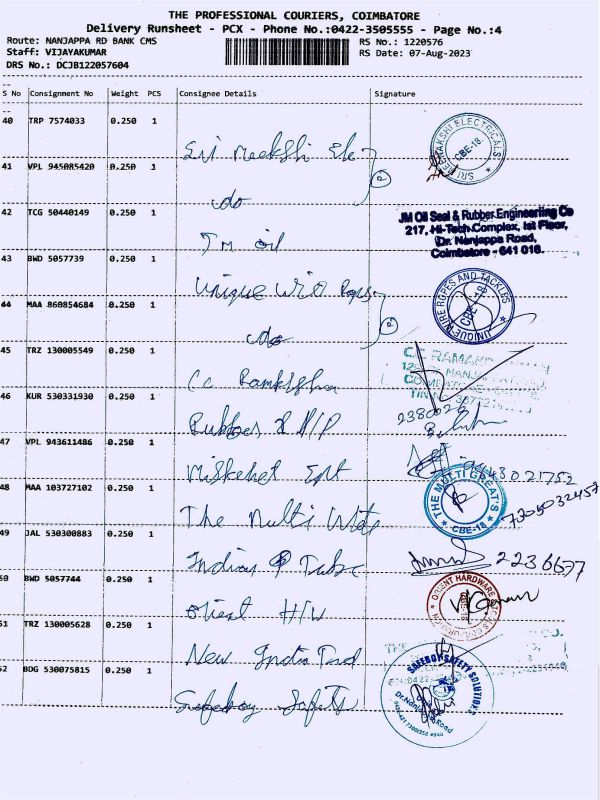 THE PROFESSIONAL COURIERS, COIMBATORE
Delivery Runsheet - PCX - Phone No.:0422-3505555 - Page No.:4
Route: NANJAPPA RD BANK CMS RS No.: 1220576
Staff: VIJAYAKUMAR RS Date: 07-Aug-2023
DRS No.: DCJB122057604
S No Consignment No Weight PCS Consignee Details Signature
40 TRP 7574033 0.250 1
SRI MEENAKSHI ELECTRICALS CBE-18.
Sri Meekshi Ele
41 VPL 945085420 0.250 1
do (2)
42 TCG 50440149 0.250 1
JM Oil Seal & Rubber Engineering Co
217, Hi-Tech Complex, Ist Floor,
Dr. Nanjappa Road,
Coimbatore - 641 018.
JM oil
43 BWD 5057739 0.250 1
Unique Wire Rops
UNIQUE WIRE ROPES AND TACKLES CBE-18
44 MAA 860854684 0.250 1
do (2)
45 TRZ 130005549 0.250 1
C.C. RAMAK
Cc Ramkishna
46 KUR 530331930 0.250 1
2380026
Rubber
47 VPL 943611486 0.250 1
9443021752
48 MAA 103727102 0.250 1
THE MULTI GREAT'S CBE-18
The Multi
49 JAL 530300883 0.250 1
2236677
Indian Tube
50 BWD 5057744 0.250 1
ORIENT HARDWARE
Orient H/W
51 TRZ 130005628 0.250 1
New India Trd
52 BDG 530075815 0.250 1
SAFEBOY SAFETY SOLUTIONS
Dr.Nanjappa Road
Safeboy Safety